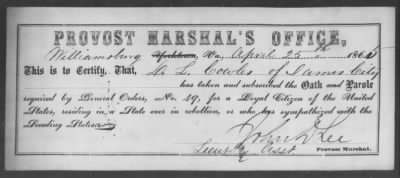 PROVOST MARSHAL'S OFFICE,
Williamsburg Yorktown, Va., April 25th 1865
This is to Certify, That, L. Cowles of James City
has taken and subscribed the Oath and Parole
required by General Orders, No. 49, for a Loyal Citizen of the United
States, residing in a State ever in rebellion, or who has sympathized with the
Seceding States.
John Lee
Lieut & Asst Provost Marshal.